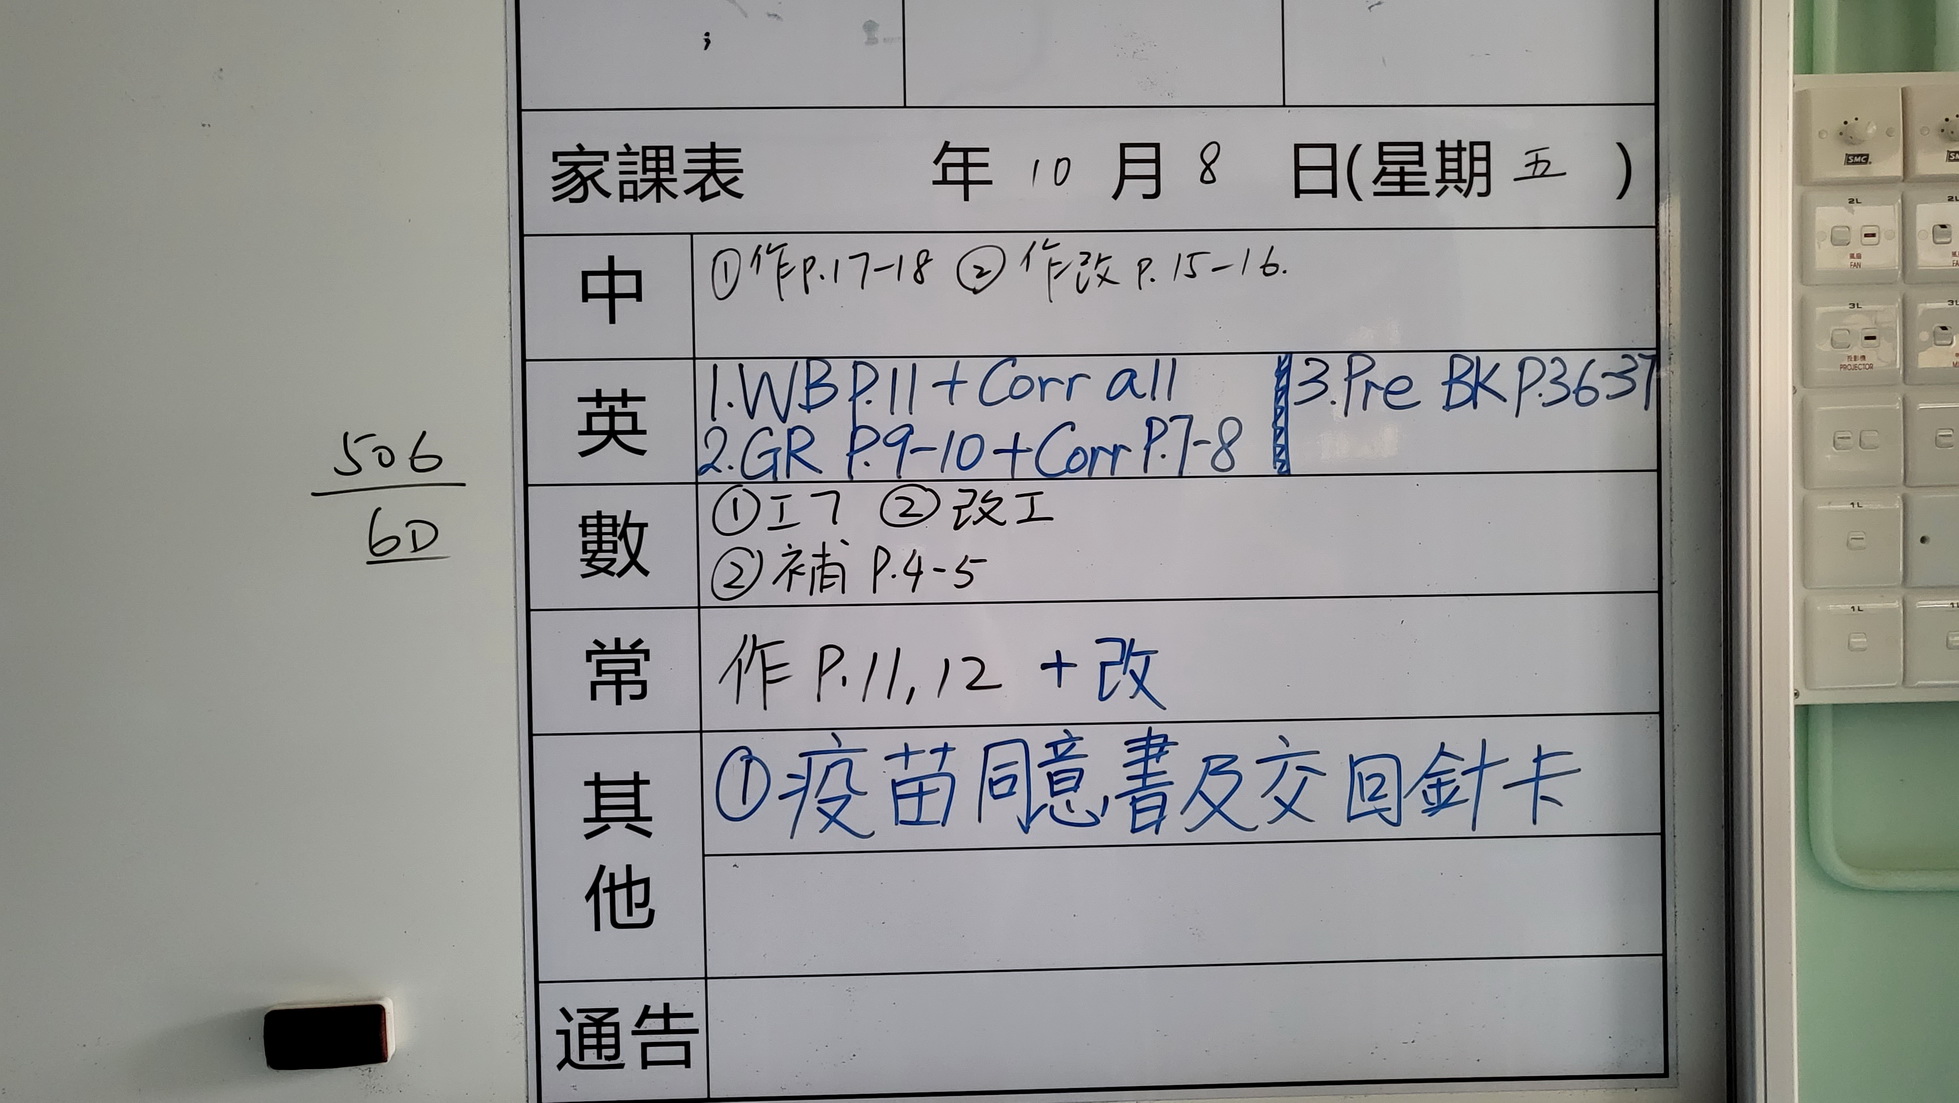 家課表 年 10 月 8 日(星期 五 )
中 ①作P.17-18 ② 作改 P.15-16.
英 1.WB P.11 + Corr all 3.Pre BK P.36-37
2.GR P.9-10 + Corr P.7-8
506
6D
數 ①工7 ②改工
②補 P.4-5
常 作 P.11, 12 + 改
其他 ①疫苗同意書及交回針卡
通告
SMC
2L
風扇
FAN
3L
投影機
PROJECTOR
1L
1L